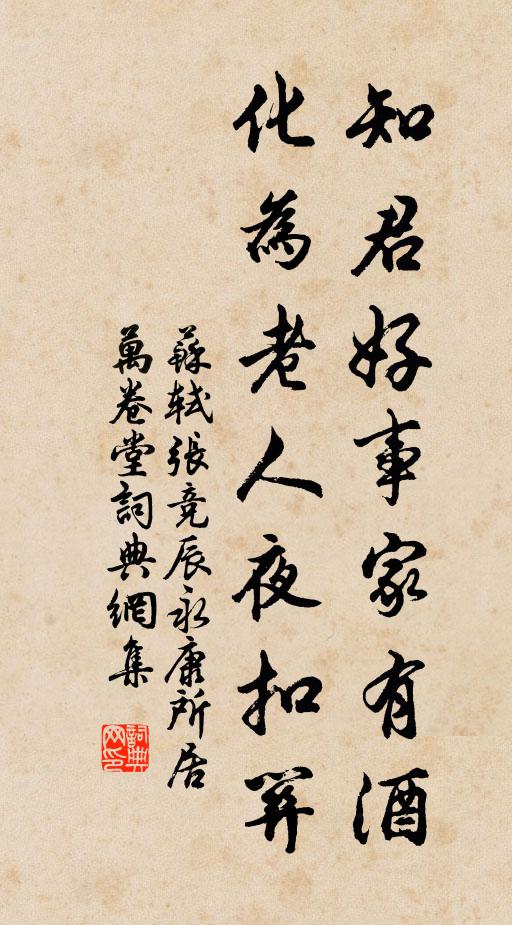 知君好事家有酒
化為老人夜扣關
蘇軾張竞辰永康所居
萬卷堂詞典網集
詞典
网印